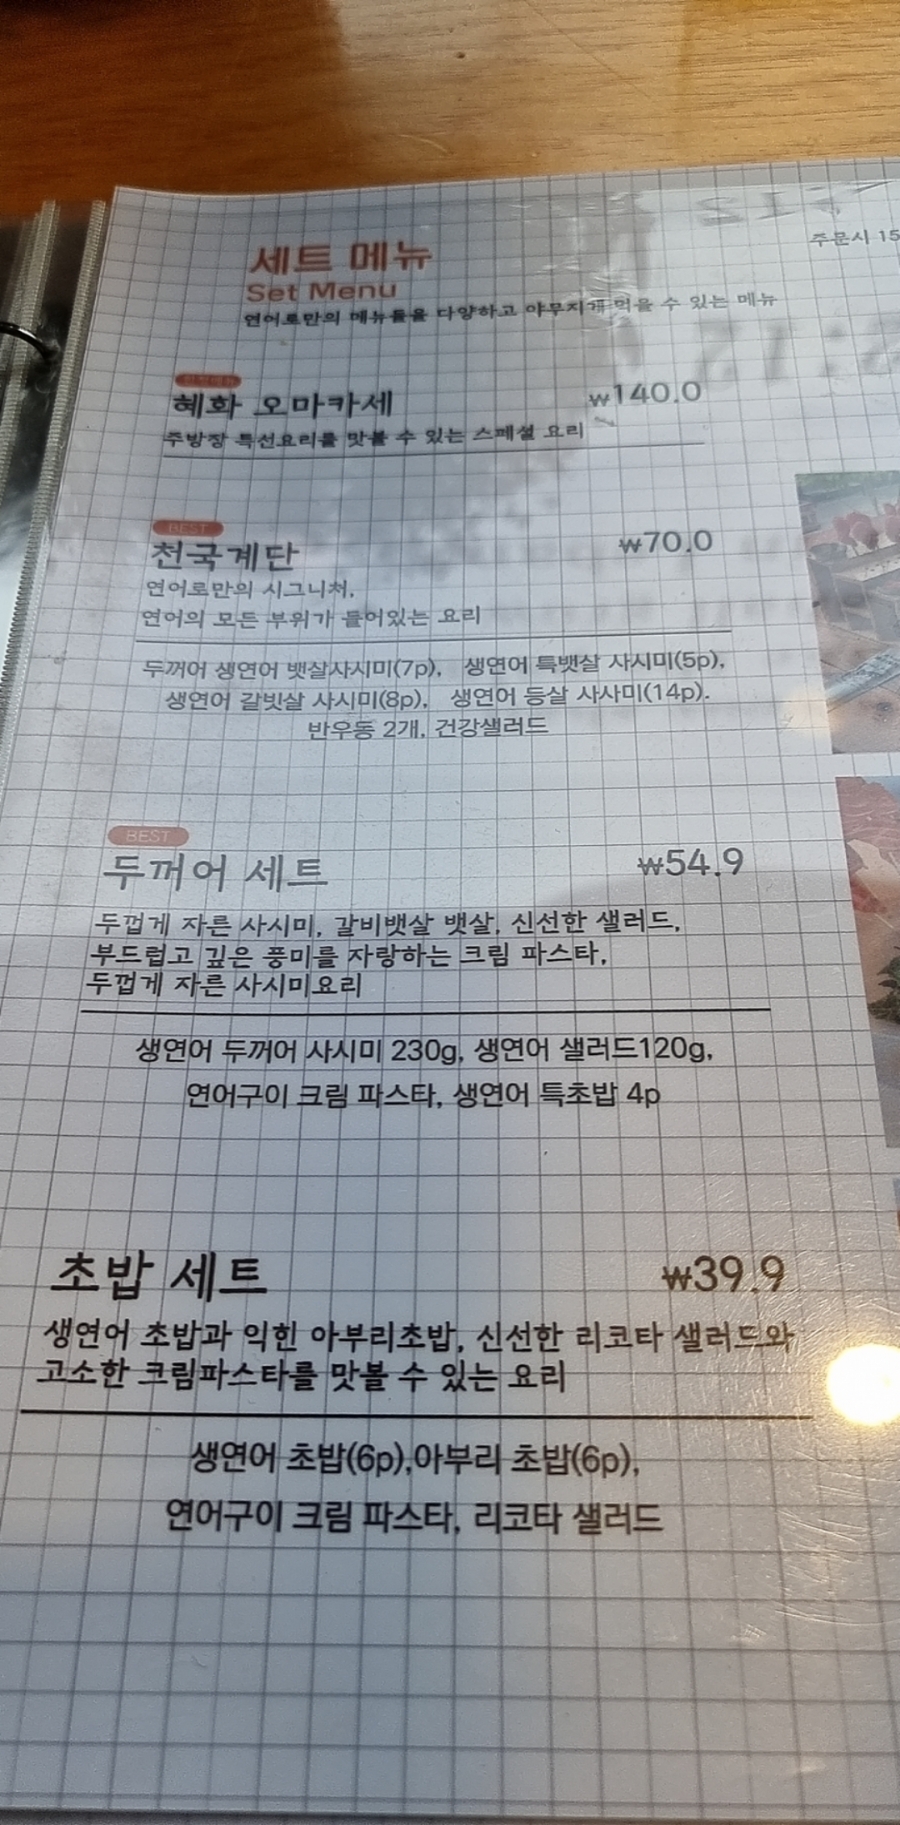 세트 메뉴
Set Menu
연어로만의 메뉴들을 다양하고 야무지게 먹을 수 있는 메뉴
주문시 15
혜화 오마카세 ₩140.0
주방장 특선요리를 맛볼 수 있는 스페셜 요리
BEST
천국계단 ₩70.0
연어로만의 시그니처,
연어의 모든 부위가 들어있는 요리
두꺼어 생연어 뱃살사시미(7p), 생연어 특뱃살 사시미(5p),
생연어 갈빗살 사시미(8p), 생연어 등살 사사미(14p).
반우동 2개, 건강샐러드
BEST
두꺼어 세트 ₩54.9
두껍게 자른 사시미, 갈비뱃살 뱃살, 신선한 샐러드,
부드럽고 깊은 풍미를 자랑하는 크림 파스타,
두껍게 자른 사시미요리
생연어 두꺼어 사시미 230g, 생연어 샐러드120g,
연어구이 크림 파스타, 생연어 특초밥 4p
초밥 세트 ₩39.9
생연어 초밥과 익힌 아부리초밥, 신선한 리코타 샐러드와
고소한 크림파스타를 맛볼 수 있는 요리
생연어 초밥(6p),아부리 초밥(6p),
연어구이 크림 파스타, 리코타 샐러드